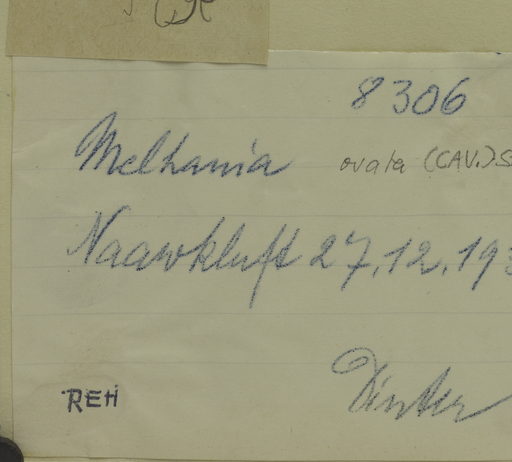 8306
Melhania ovata (CAV.) S
Naawkluft 27.12.193
Dinter
REH